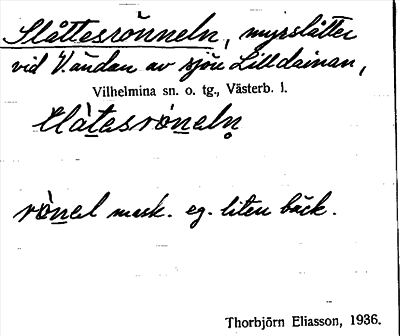 Slåttesrönneln, myrslåtter
vid V. ändan av sjön Lilldainan,
Vilhelmina sn. o. tg., Västerb. l.
slàtesrònеln̥
rònel mask. eg. liten bäck.
Thorbjörn Eliasson, 1936.